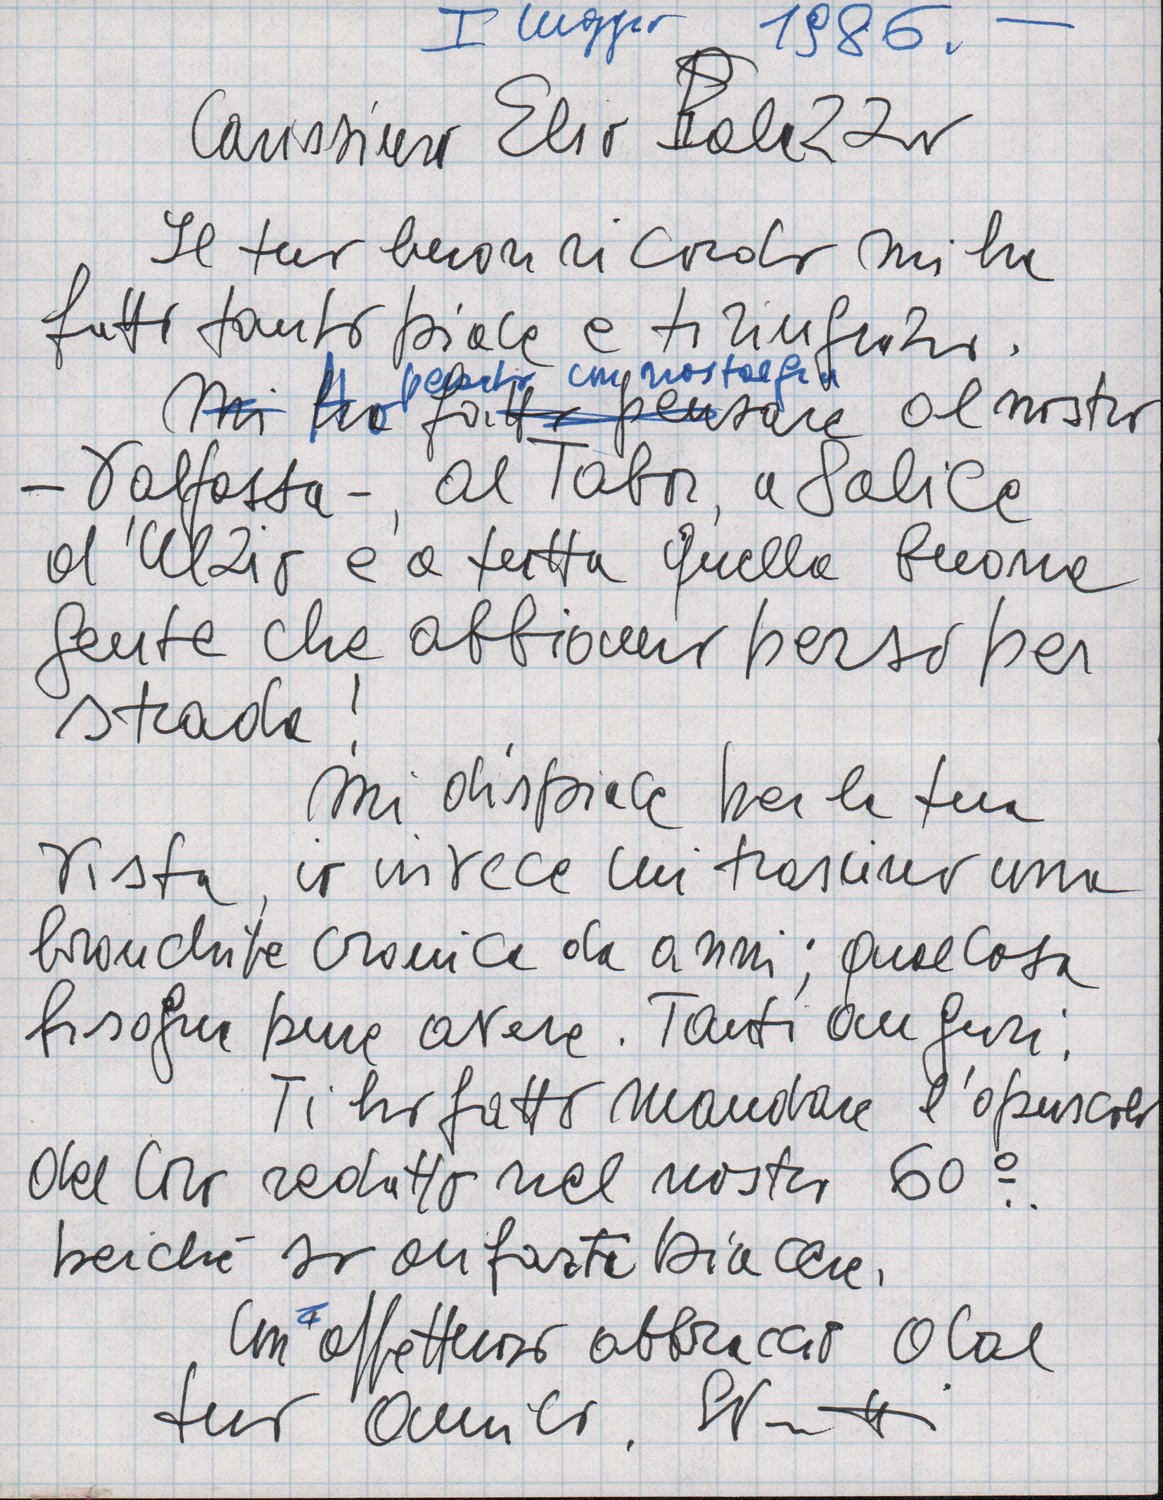 I maggio 1986. —
Carissimo Elio Palazzo
Il tuo buon ricordo mi ha
fatto tanto piace e ti ringrazio.
pensato con nostalgia
Mi ho fatto pensare al nostro
- Valfossa -, al Tabor, a Salice
d'Ulzio e a tutta quella buona
gente che abbiamo perso per
strada!
Mi dispiace per la tua
vista, io invece mi trascino una
bronchite cronica da anni; qualcosa
bisogna pure avere. Tanti auguri;
Ti ho fatto mandare l'opuscolo
del Coro redatto nel nostro 60º..
perché so di farti piacere.
Con affettuoso abbraccio dal
tuo amico,